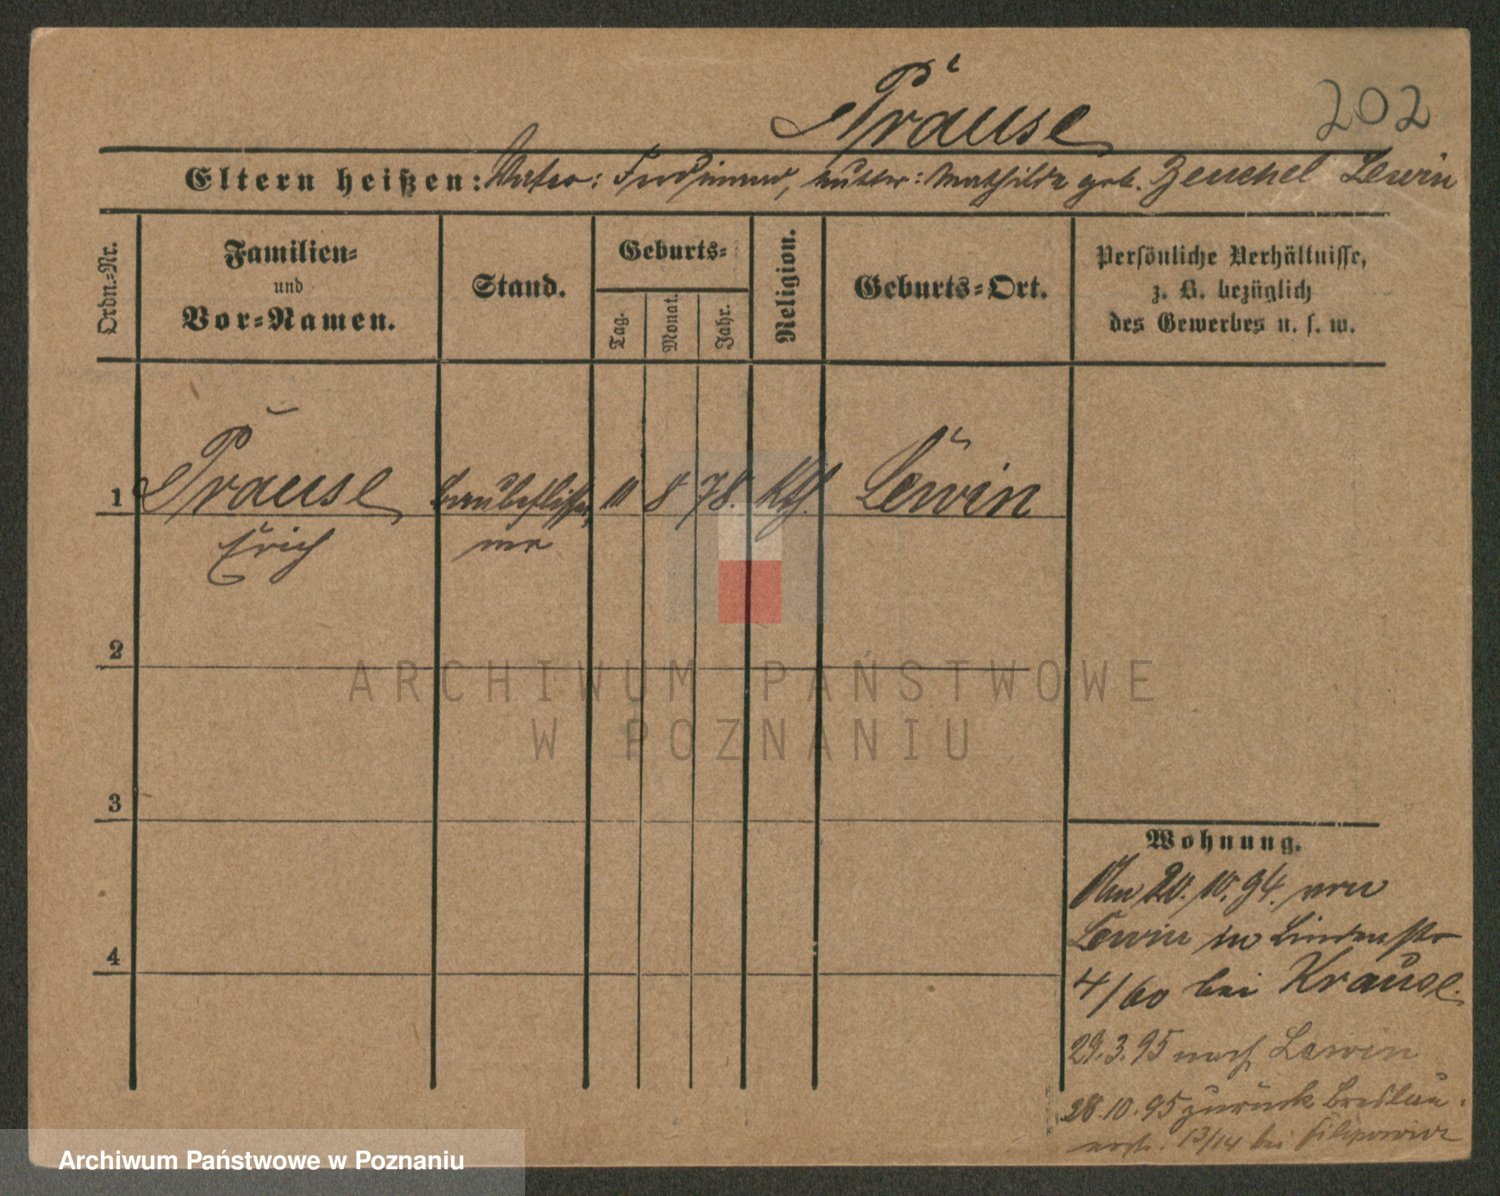 202
Präuse
Eltern heißen: Vater: Ferdinand, Mutter: Mathilde geb. Zenchel Lewin
Ordn.-Nr.
Familien-
und
Vor-Namen.
Stand.
Geburts-
Tag.
Monat.
Jahr.
Religion.
Geburts-Ort.
Persönliche Verhältnisse,
z. B. bezüglich
des Gewerbes u. s. w.
1 Präuse Baubeflisse- 11 8 78. Kth. Lewin
Erich ner
2
3
4
Wohnung.
Am 20.10.94. von
Lewin in Lindenstr
4/60 bei Krause.
29.3.95 nach Lewin
28.10.95 zurück Breslau.
13/14 bei
ARCHIWUM PAŃSTWOWE
W POZNANIU
Archiwum Państwowe w Poznaniu